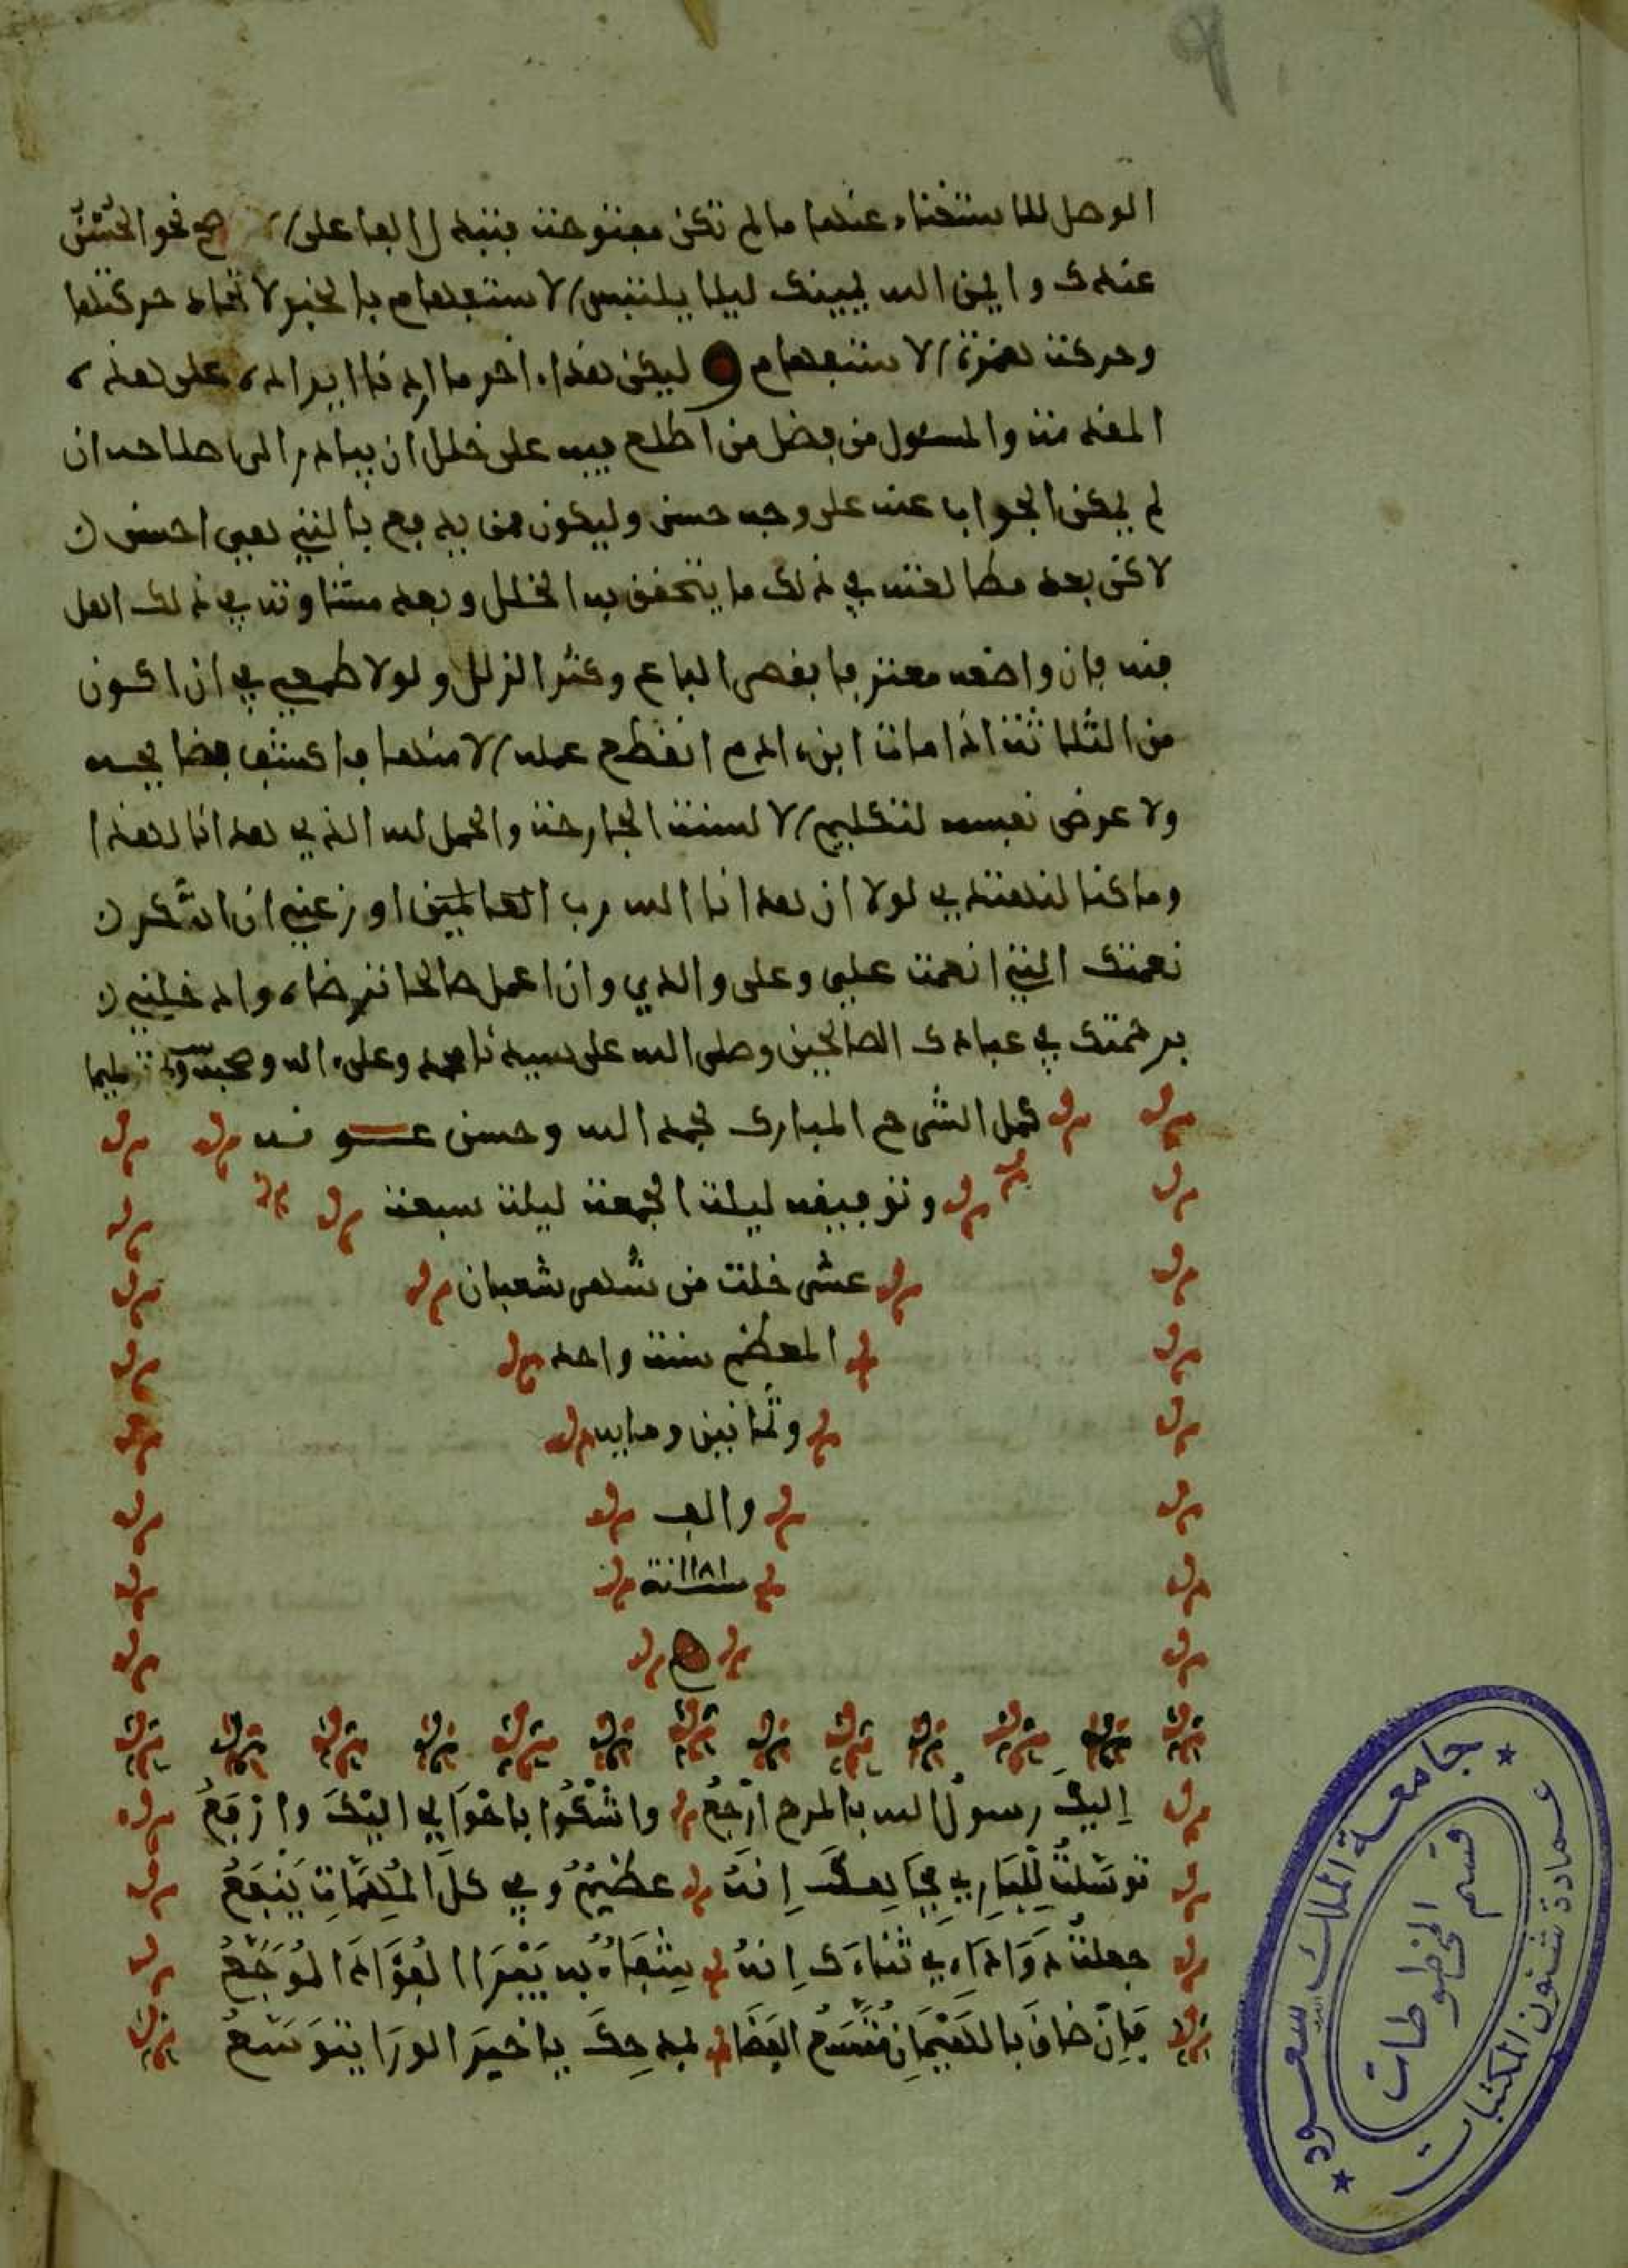 الوصل للاستغناء عنها ما لم تكن مفتوحة فتبدل الفا على الاصح نحو الحسن
عندك وايمن الله يمينك ليلا يلتبس الاستفهام بالخبر لاتحاد حركتها
وحركة همزة الاستفهام وليكن هذا اخر ما اردنا ايراده على هذه
المقدمة والمسئول من فضل من اطلع فيه على خلل ان يبادر الى اصلاحه ان
لم يمكن الجواب عنه على وجه حسن وليكون ممن يدفع بالتي هي احسن
لاكن بعد مطالعته في ذلك ما يتحقق به الخلل وبعد مشاورته في ذلك اهل
فان واضعه معترف بقصر الباع وكثر الزلل ولولا طمعي في ان اكون
من الثلاثة اذا مات ابن ادم انقطع عمله الا منها
ولا عرض نفسه لتكليم الالسنة الجارحة والحمد لله الذي هدانا لهذا
وما كنا لنهتدي لولا ان هدانا الله رب العالمين اوزعني ان اشكر
نعمتك التي انعمت علي وعلى والدي وان اعمل صالحا ترضاه وادخلني
برحمتك في عبادك الصالحين وصلى الله على سيدنا محمد وعلى اله وصحبه وسلم تسليما
كمل الشرح المبارك بحمد الله وحسن عونه
وتوفيقه ليلة الجمعة ليلة سبعة
عشر خلت من شهر شعبان
المعظم سنة واحد
وثمانين ومايه
والف
سنة ١١٨١
إليك رسول الله بالمدح ارْجعُ واشْكُوا باحْوَالي اليْكَ وارْفَعُ
توسّلتُ لِلْبَارِي بِجَاهِكَ إنَّهُ عظيمُ وفي كلّ المُهِمَّاتِ يَنْفَعُ
جعلتُ دَوَاءَ دَاءِي ثناءَك إنهُ شِفَاءٌ به يَبْرَا الفُؤَادُ المُوَجَّعُ
فَإنْ ضاقَ بالهَيْمَانِ مُتَّسَعُ الفَضَا بمدحِكَ يا خيرَ الورَا يتوَسَّعُ
جامعة الملك سعود
عمادة شئون المكتبات
قسم المخطوطات